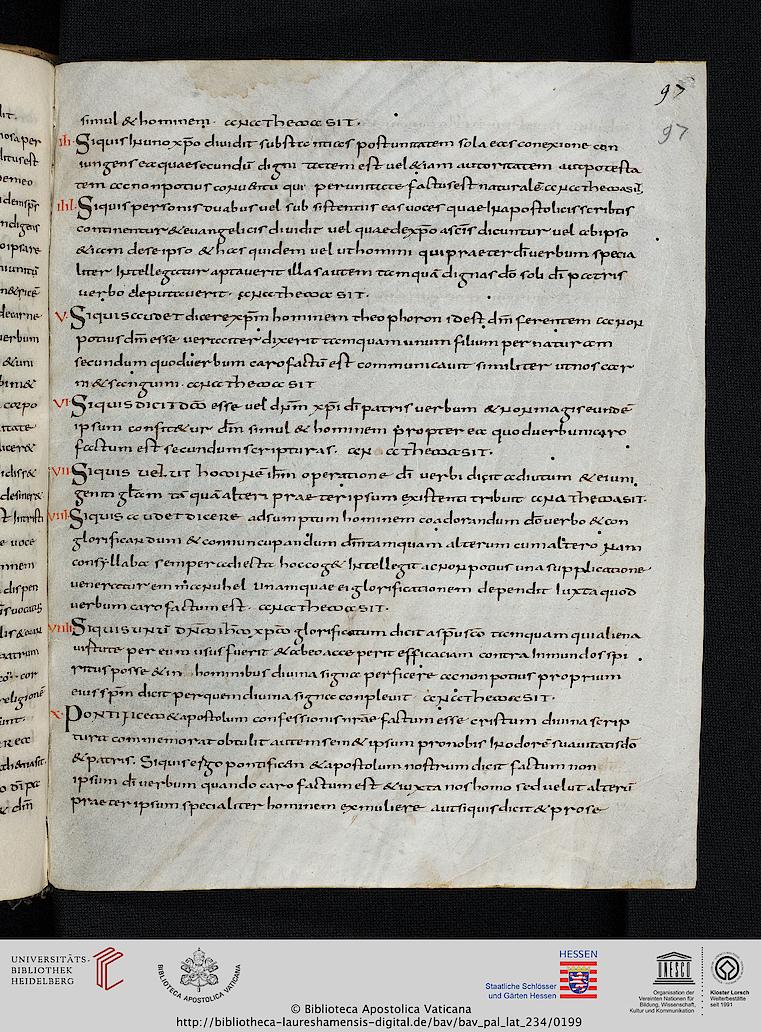 97
97
simul & hominem. anathema sit.
III. Siquis in uno xp̄o dividit substantias post unitatem sola eas conexione con
iungens ea quae secundū dignitatem est vel &iam auctoritatem aut potesta
tem ac non potius conventu qui per unitatē factus est naturalē anathema sit,
IIII. Siquis personis duabus vel subsistentiis eas voces quae in apostolicis scribtis
continentur & evangelicis dividit vel quae de xp̄o a sc̄is dicuntur vel ab ipso
&iam de se ipso & has quidem vel ut homini qui praeter dī verbum specia
liter intellegatur aptaverit illas autem tamquā dignas dō soli dī patris
verbo deputaverit. anathema sit.
V. Siquis audet dicere xp̄m hominem theophoron id est dm̄ ferentem ac non
potius dm̄ esse veraciter dixerit tamquam unum filium per naturam
secundum quod verbum caro factū est communicavit similiter ut nos car
ni & sanguini. anathema sit
VI. Siquis dicit dm̄ esse vel dn̄m xp̄i dī patris verbum & non magis eundē
ipsum confit&ur dm̄ simul & hominem propter ea quod verbum caro
factum est secundum scripturas. anathema sit.
VII Siquis velut hominē ih̄m operatione dī verbi dicit adiutum & euni
geniti gl̄am tāquā alteri praeter ipsum existenti tribuit anathema sit.
VIII. Siquis audet dicere adsumptum hominem coadorandum dō verbo & con
glorificandum & connuncupandum dm̄ tamquam alterum cum altero nam
con syllaba semper adiecta hoc cog& intellegi ac non potius una supplicatione
veneratur emmanuhel unamque ei glorificationem dependit iuxta quod
verbum caro factum est. anathema sit.
VIIII. Siquis unū dn̄m ih̄m xp̄m glorificatum dicit a sp̄u sc̄o tamquam qui aliena
virtute per eum usus fuerit & ab eo acceperit efficaciam contra inmundos spi
ritus posse & in hominibus divina signa perficere ac non potius proprium
eius sp̄m dicit per quem divina signa conplevit. anathema sit.
X. Pontificem & apostolum confessionis nr̄ae factum esse cristum divina scrip
tura commemorat obtulit autem sem& ipsum pro nobis in odorē suavitatis dō
& patri. Siquis ergo pontificem & apostolum nostrum dicit factum non
ipsum dī verbum quando caro factum est & iuxta nos homo sed velut alterū
praeter ipsum specialiter hominem ex muliere aut siquis dicit & pro se
UNIVERSITÄTS-
BIBLIOTHEK
HEIDELBERG
BIBLIOTECA APOSTOLICA VATICANA
© Biblioteca Apostolica Vaticana
http://bibliotheca-laureshamensis-digital.de/bav/bav_pal_lat_234/0199
HESSEN
Staatliche Schlösser
und Gärten Hessen
UNESCO
Organisation der
Vereinten Nationen für
Bildung, Wissenschaft,
Kultur und Kommunikation
Kloster Lorsch
Welterbestätte
seit 1991